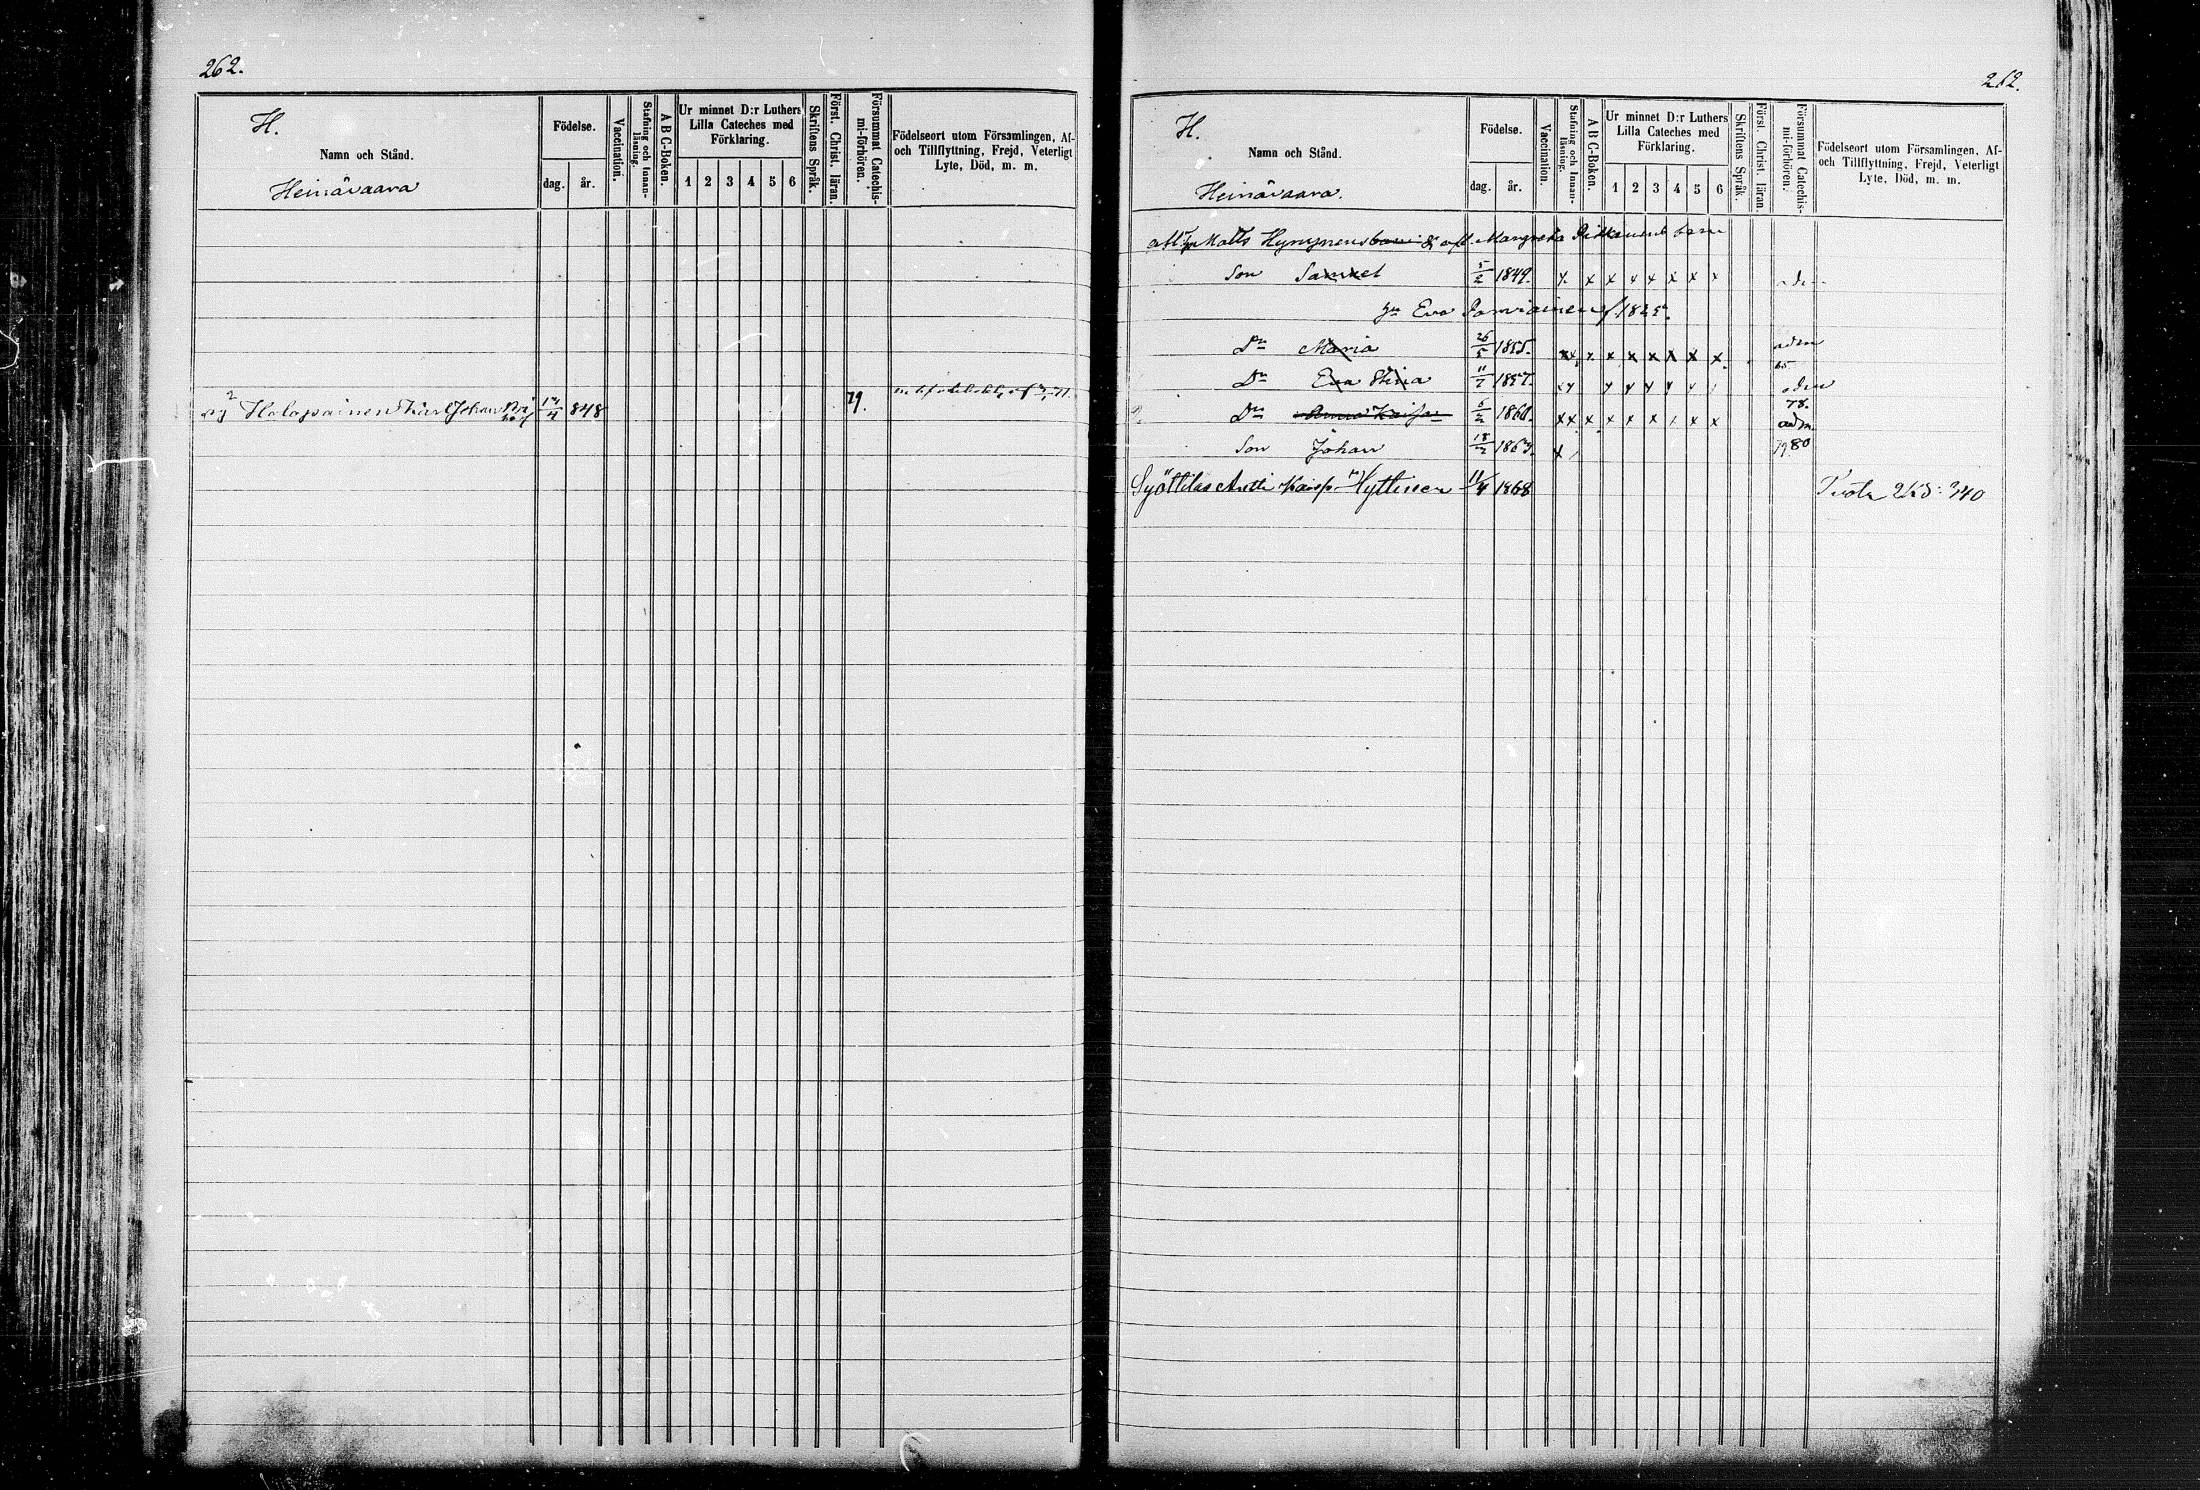 262.
H.
Namn och Stånd.
Heinävaara
Födelse.
dag. år.
Vaccination.
Stafning och Innanläsning.
A B C-Boken.
Ur minnet D:r Luthers
Lilla Cateches med
Förklaring.
1 2 3 4 5 6
Skriftens Språk.
Först. Christ. läran.
Försummat Catechismi-förhören.
Födelseort utom Församlingen, Af-
och Tillflyttning, Frejd, Veterligt
Lyte, Död, m. m.
Holopainen Karl Johan 14/4 848 79.
262.
H.
Namn och Stånd.
Heinävaara.
Födelse.
dag. år.
Vaccination.
Stafning och Innanläsning.
A B C-Boken.
Ur minnet D:r Luthers
Lilla Cateches med
Förklaring.
1 2 3 4 5 6
Skriftens Språk.
Först. Christ. läran.
Försummat Catechismi-förhören.
Födelseort utom Församlingen, Af-
och Tillflyttning, Frejd, Veterligt
Lyte, Död, m. m.
Matts Hyvynens barn & afl. Margreta barn
Son Samuel 5/2 1849. x x x x x x x x
Eva 1825.
Dr Maria 26/5 1855. xx x x x x x x x adm
65
Dr Eva Stina 11/7 1857. xx x x x x x x adm
78.
Dr Anna Kaisa 6/2 1860. xx x x x x x x x adm.
Son Johan 18/2 1863. x 79.80
Syöttilas Antti Kaisp. Hyttinen 11/4 1868 340